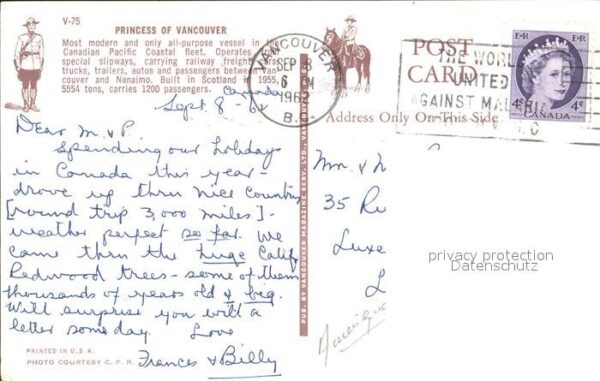 V-75
PRINCESS OF VANCOUVER
Most modern and only all-purpose vessel in the
Canadian Pacific Coastal fleet. Operates from
special slipways, carrying railway freight cars
trucks, trailers, autos and passengers between Van-
couver and Nanaimo. Built in Scotland in 1955,
5554 tons, carries 1200 passengers.
Canada
Sept. 8 - 62
Dear M. & P.
Spending our holidays
in Canada this year-
drove up thru nice country
[round trip 3,000 miles]-
weather perfect so far. We
came thru the huge Calif
Redwood trees - some of them
thousands of years old & big.
Will surprise you with a
letter some day. Love
Frances & Billy
PRINTED IN U.S.A.
PHOTO COURTESY C. P. R.
PUB. BY VANCOUVER MAGAZINE SERV. LTD., VANCOUVER
VANCOUVER
SEP 8
6 PM
1962
B.C.
POST
CARD
THE WORLD
UNITED
AGAINST MALARIA
E II R
E II R
4¢
4¢
CANADA
Address Only On This Side
Mr. &
35
Luxe
L
Amérique
privacy protection
Datenschutz